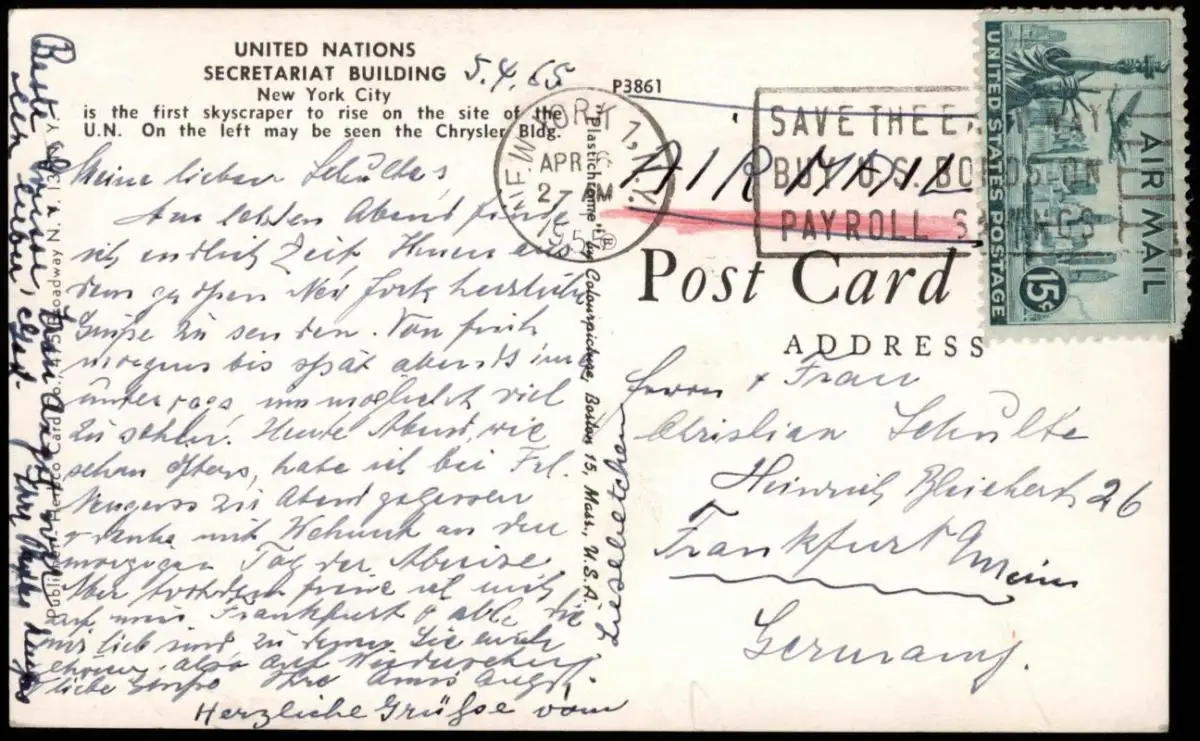 UNITED NATIONS
SECRETARIAT BUILDING
New York City
is the first skyscraper to rise on the site of the
U.N. On the left may be seen the Chrysler Bldg.
5.4.65
P3861
NEW YORK 1, N.Y.
APR
2 AM
SAVE THE EASY WAY
BUY U.S. BONDS ON
PAYROLL SAVINGS
AIR MAIL
UNITED STATES POSTAGE
AIR MAIL
15¢
Post Card
ADDRESS
Herrn + Frau
Christian Schulte
Heinrich Bleichert 26
Frankfurt Main
Germany.
Meine lieben Schultes,
Am letzten Abend finde
ich endlich Zeit, Ihnen aus
dem großen New York herzliche
Grüße zu senden. Von früh
morgens bis spät abends
unterwegs, um möglichst viel
zu sehen. Heute Abend, wie
schon öfters, habe ich bei Frl.
zu Abend gegessen
denke mit Wehmut an den
morgigen Tag der Abreise
Aber trotzdem freue ich mich
auf Frankfurt + alle, die
mir lieb sind zu
also auf Wiedersehen
liebe Grüße Ihre
Herzliche Grüße vom
Lieselottchen
"Plastichrome" ® by Colourpicture, Boston 15, Mass., U.S.A.
Broadway N. Y. 13, N. Y.
Beste Grüsse